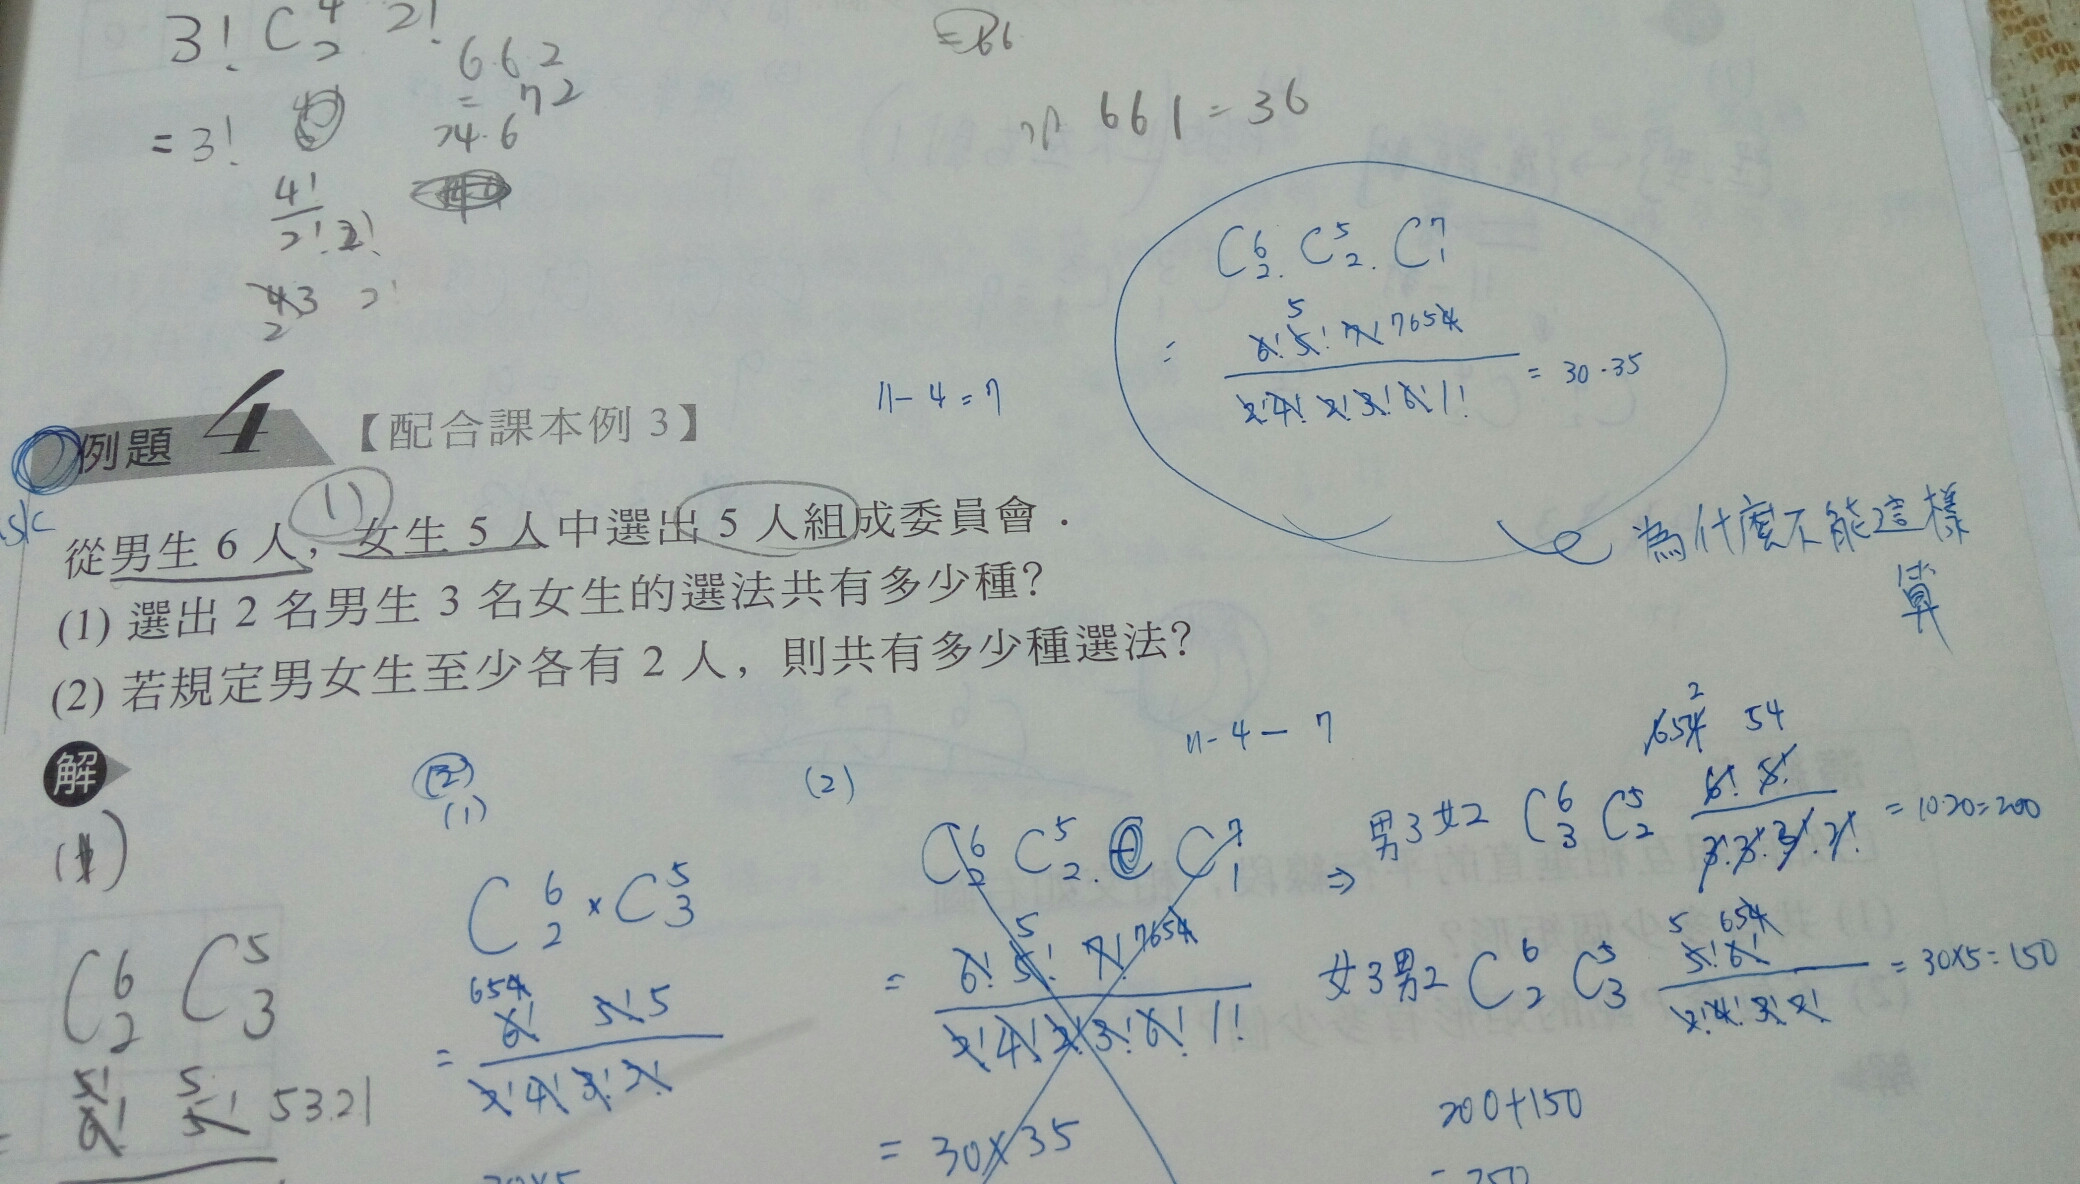 3! C⁴₂ 2!
6·6·2
= 72
24·6
= 3!
4!
2! 2!
43 2!
2
= 66
661 = 36
C⁶₂. C⁵₂. C⁷₁
5
= 6! 5! 7! 7654
2!4! 2!3! 6! 1!
= 30·35
11-4=7
例題 4 【配合課本例 3】
(1)
從男生 6 人，女生 5 人中選出 5 人組成委員會．
(1) 選出 2 名男生 3 名女生的選法共有多少種？
(2) 若規定男女生至少各有 2 人，則共有多少種選法？
為什麼不能這樣
算
解
(1)
C⁶₂ C⁵₃
5! 5
6! 5! 5321
(2)
(1)
C⁶₂ × C⁵₃
654
= 6! 5! 5
2! 4! 3! 2!
30×5
(2)
11-4-7
C⁶₂ C⁵₂. C⁷₁
5
= 6! 5! 7! 7654
2! 4! 2! 3! 6! 1!
= 30×35
⇒ 男3女2 C⁶₃ C⁵₂
2
654 54
6! 5!
3! 3! 3! 2!
= 10·20=200
女3男2 C⁶₂ C⁵₃
5 654
5! 6!
2! 4! 3! 2!
= 30×5=150
200+150
= 350